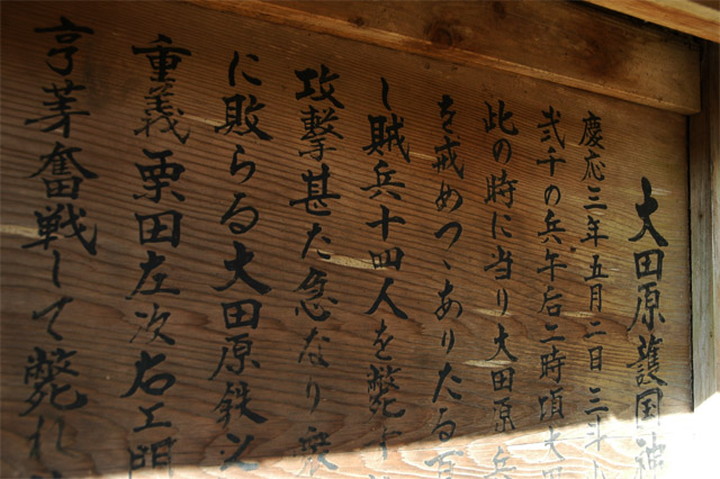 大田原護国神
慶応三年五月二日三斗
弐千の兵午后二時頃大田
此の時に当り大田原兵
を戒めつゝありたる
し賊兵十四人を斃す
攻撃甚た急なり衆
に敗らる大田原鉄之
重義栗田左次右エ門
亨茅奮戦して斃れ